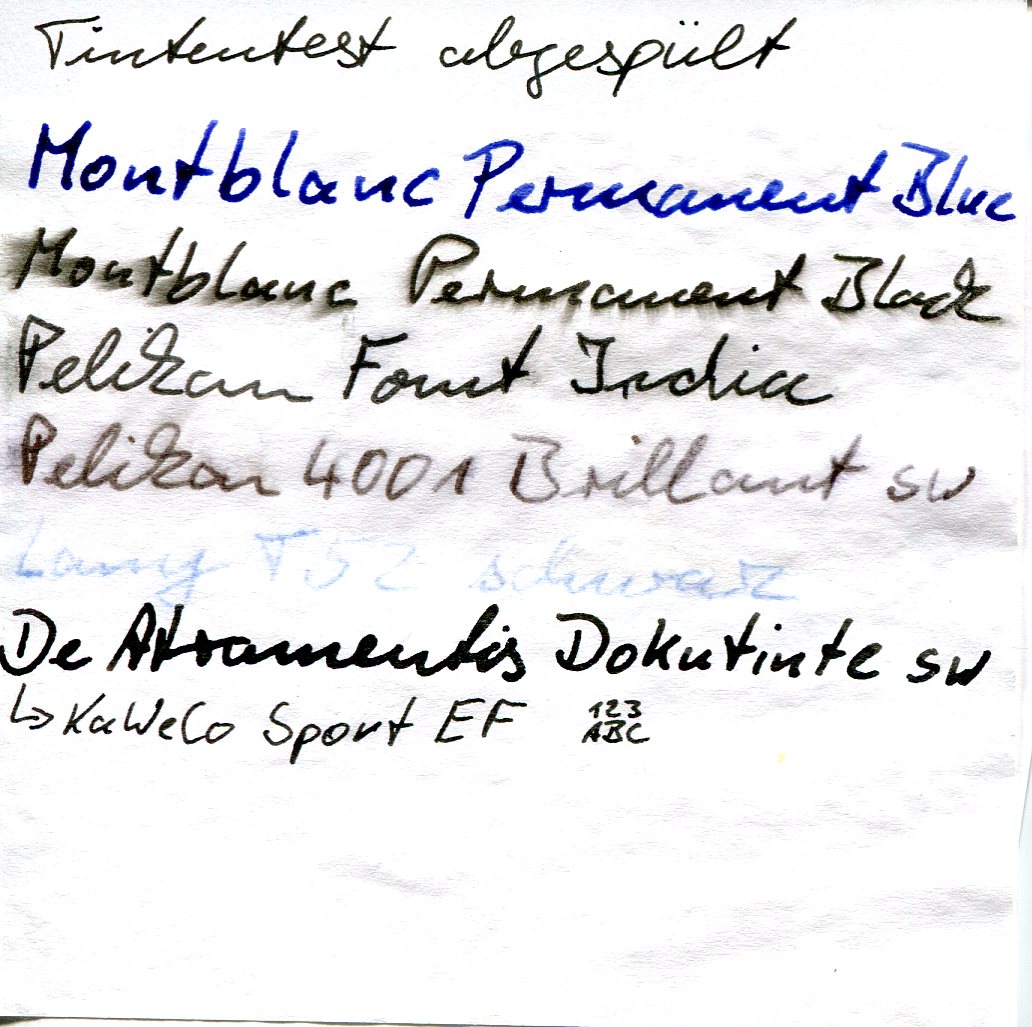 Tintentest abgespült
Montblanc Permanent Blue
Montblanc Permanent Black
Pelikan Fount India
Pelikan 4001 Brillant sw
Lamy T52 schwarz
De Atramentis Dokutinte sw
↳ KaWeCo Sport EF 123
ABC